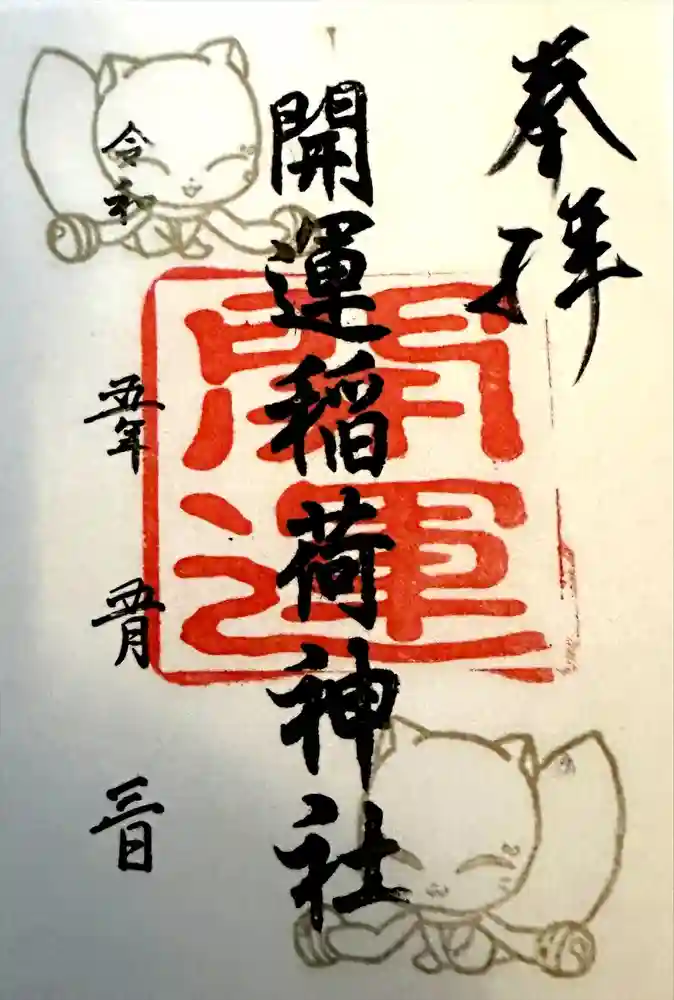 奉拝
開運稲荷神社
開運
令和 五年 五月 三日